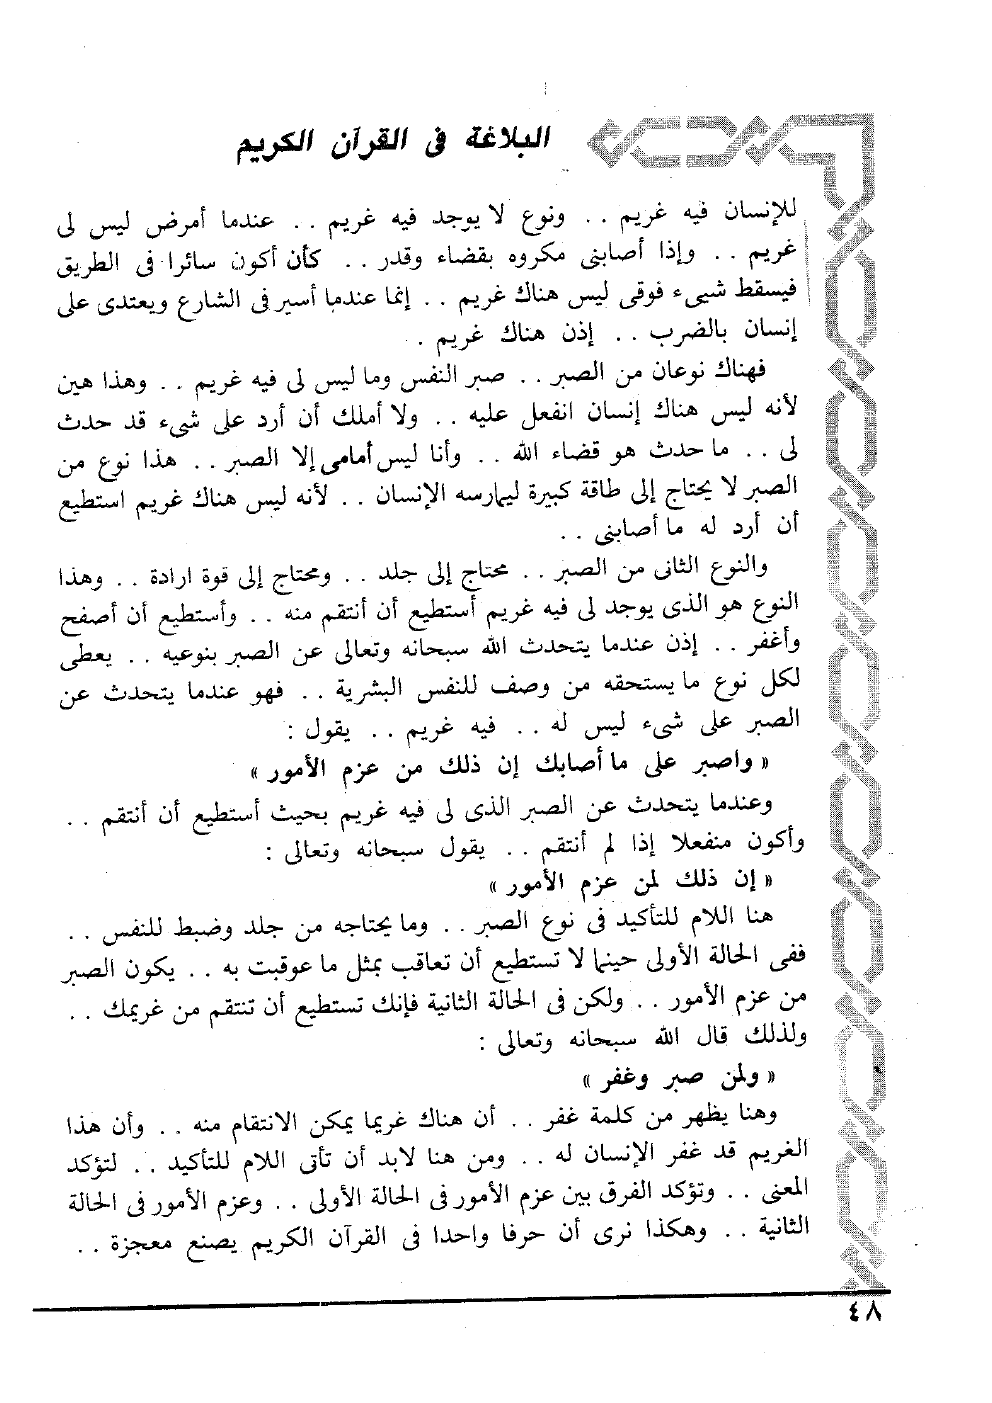 البلاغة فى القرآن الكريم
للإنسان فيه غريم . . ونوع لا يوجد فيه غريم . . عندما أمرض ليس لى
غريم . . وإذا أصابنى مكروه بقضاء وقدر . . كأن أكون سائرا فى الطريق
فيسقط شىء فوقى ليس هناك غريم . . إنما عندما أسير فى الشارع ويعتدى على
إنسان بالضرب . . إذن هناك غريم .
فهناك نوعان من الصبر . . صبر النفس وما ليس لى فيه غريم . . وهذا هين
لأنه ليس هناك إنسان انفعل عليه . . ولا أملك أن أرد على شىء قد حدث
لى . . ما حدث هو قضاء الله . . وأنا ليس أمامى إلا الصبر . . هذا نوع من
الصبر لا يحتاج إلى طاقة كبيرة ليمارسه الإنسان . . لأنه ليس هناك غريم استطيع
أن أرد له ما أصابنى . .
والنوع الثانى من الصبر . . محتاج إلى جلد . . ومحتاج إلى قوة ارادة . . وهذا
النوع هو الذى يوجد لى فيه غريم أستطيع أن أنتقم منه . . وأستطيع أن أصفح
وأغفر . . إذن عندما يتحدث الله سبحانه وتعالى عن الصبر بنوعيه . . يعطى
لكل نوع ما يستحقه من وصف للنفس البشرية . . فهو عندما يتحدث عن
الصبر على شىء ليس له . . فيه غريم . . يقول :
« واصبر على ما أصابك إن ذلك من عزم الأمور »
وعندما يتحدث عن الصبر الذى لى فيه غريم بحيث أستطيع أن أنتقم . .
وأكون منفعلا إذا لم أنتقم . . يقول سبحانه وتعالى :
« إن ذلك لمن عزم الأمور »
هنا اللام للتأكيد فى نوع الصبر . . وما يحتاجه من جلد وضبط للنفس . .
ففى الحالة الأولى حينما لا تستطيع أن تعاقب بمثل ما عوقبت به . . يكون الصبر
من عزم الأمور . . ولكن فى الحالة الثانية فإنك تستطيع أن تنتقم من غريمك . .
ولذلك قال الله سبحانه وتعالى :
« ولمن صبر وغفر »
وهنا يظهر من كلمة غفر . . أن هناك غريما يمكن الانتقام منه . . وأن هذا
الغريم قد غفر الإنسان له . . ومن هنا لابد أن تأتى اللام للتأكيد . . لتؤكد
المعنى . . وتؤكد الفرق بين عزم الأمور فى الحالة الأولى . . وعزم الأمور فى الحالة
الثانية . . وهكذا نرى أن حرفا واحدا فى القرآن الكريم يصنع معجزة . .
٤٨